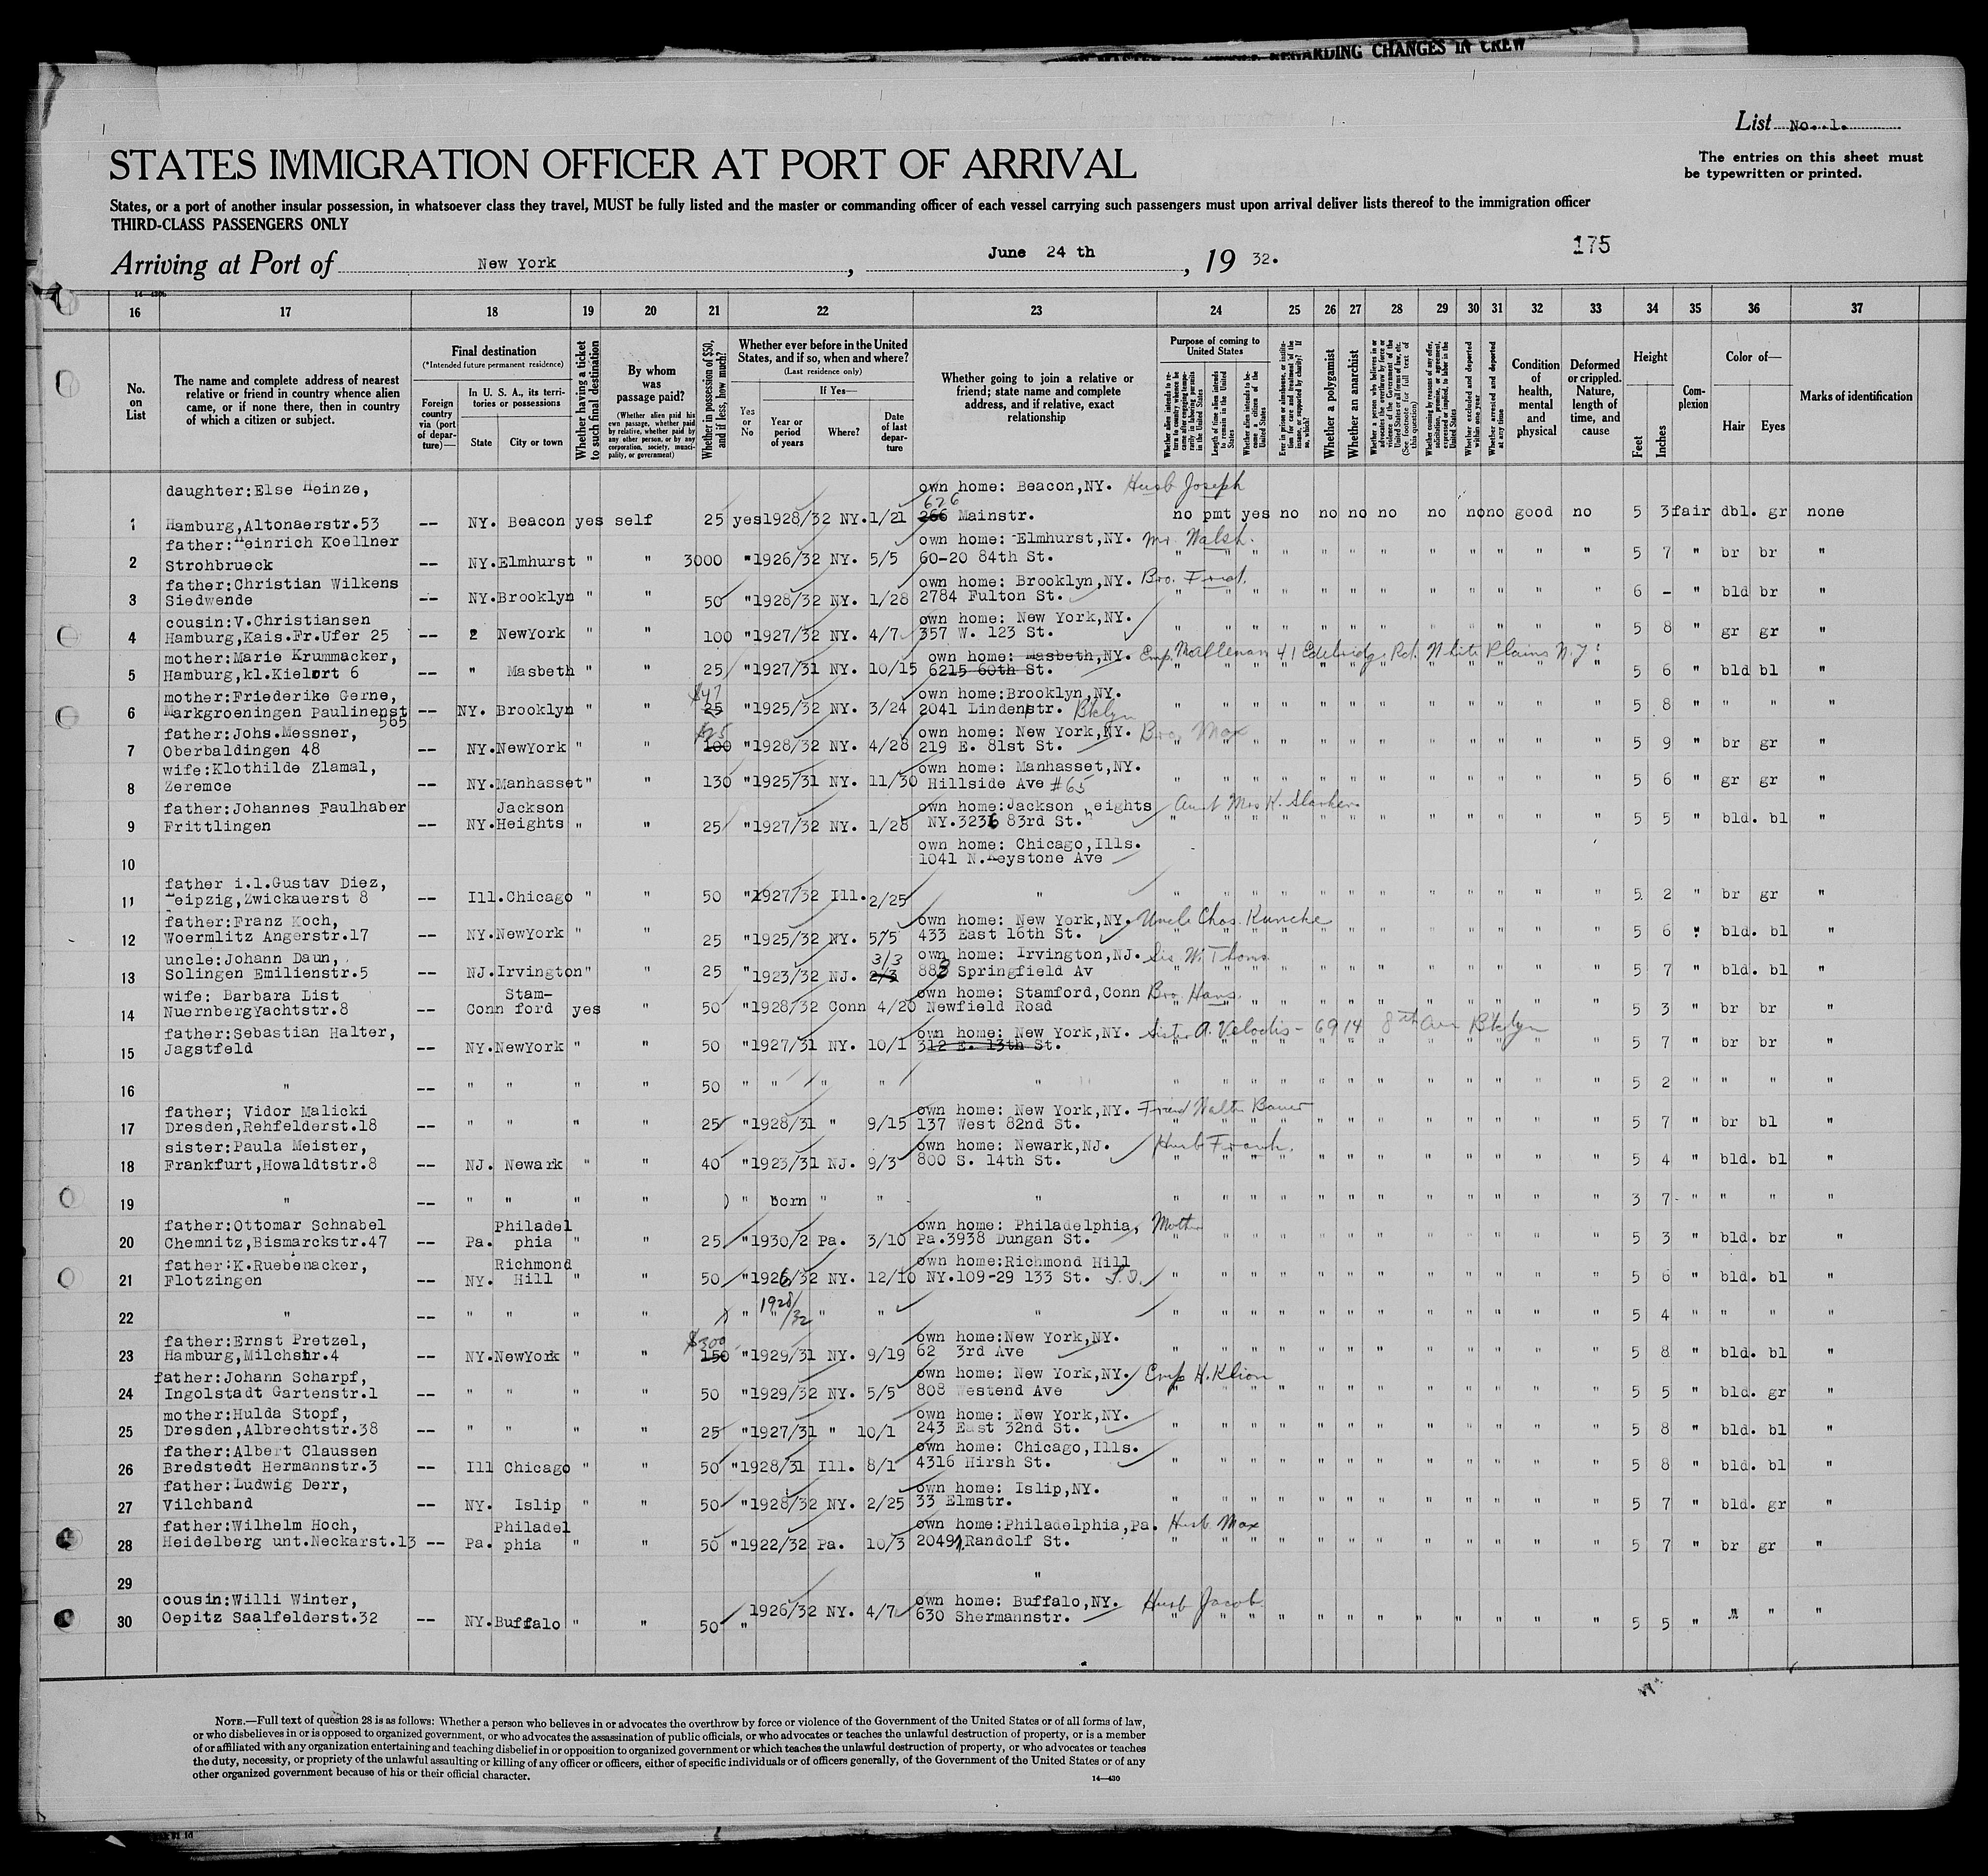 REGARDING CHANGES IN CREW
List No. 1.
STATES IMMIGRATION OFFICER AT PORT OF ARRIVAL
The entries on this sheet must
be typewritten or printed.
States, or a port of another insular possession, in whatsoever class they travel, MUST be fully listed and the master or commanding officer of each vessel carrying such passengers must upon arrival deliver lists thereof to the immigration officer
THIRD-CLASS PASSENGERS ONLY
175
Arriving at Port of New York, June 24 th, 19 32.
16 17 18 19 20 21 22 23 24 25 26 27 28 29 30 31 32 33 34 35 36 37
No. on List
The name and complete address of nearest relative or friend in country whence alien came, or if none there, then in country of which a citizen or subject.
Final destination
(*Intended future permanent residence)
Foreign country via (port of departure)—
In U. S. A., its territories or possessions
State City or town
Whether having a ticket to such final destination
By whom was passage paid?
(Whether alien paid his own passage, whether paid by relative, whether paid by any other person, or by any corporation, society, municipality, or government)
Whether in possession of $50, and if less, how much?
Whether ever before in the United States, and if so, when and where?
(Last residence only)
Yes or No
If Yes—
Year or period of years Where? Date of last departure
Whether going to join a relative or friend; state name and complete address, and if relative, exact relationship
Purpose of coming to United States
Length of time alien intends to remain in the United States
Whether alien intends to become a citizen of the United States
Whether a polygamist
Whether an anarchist
Whether excluded and deported within one year
Whether arrested and deported at any time
Condition of health, mental and physical
Deformed or crippled. Nature, length of time, and cause
Height
Feet Inches
Complexion
Color of—
Hair Eyes
Marks of identification
daughter:Else Heinze, own home: Beacon,NY. Husb Joseph
676
1 Hamburg,Altonaerstr.53 -- NY. Beacon yes self 25 yes1928/32 NY.1/21 266 Mainstr. no pmt yes no no no no no no no good no 5 3 fair dbl. gr none
father:Heinrich Koellner own home: Elmhurst,NY. Mr. Walsh.
2 Strohbrueck -- NY.Elmhurst " " 3000 "1926/32 NY. 5/5 60-20 84th St. " " " " " " " " " " " " 5 7 " br br "
father:Christian Wilkens own home: Brooklyn,NY. Bro.
3 Siedwende -- NY.Brooklyn " " 50 "1928/32 NY. 1/28 2784 Fulton St. " " " " " " " " " " " " 6 - " bld br "
cousin:V.Christiansen own home: New York,NY.
4 Hamburg,Kais.Fr.Ufer 25 -- 2 NewYork " " 100 "1927/32 NY. 4/7 357 W. 123 St. " " " " " " " " " " " " 5 8 " gr gr "
mother:Marie Krummacker, own home: Masbeth,NY. Emp. 41 Rd. White Plains N.Y.
5 Hamburg,kl.Kielort 6 -- " Masbeth " " 25 "1927/31 NY. 10/15 6215 60th St. " " " " " " " " " " " " 5 6 " bld bl "
mother:Friederike Gerne, $47 own home:Brooklyn,NY.
6 Markgroeningen Paulinenst -- NY. Brooklyn " " 25 "1925/32 NY. 3/24 2041 Lindenstr. Bklyn " " " " " " " " " " " " 5 8 " " " "
565
father:Johs.Messner, $25 own home: New York,NY. Bro. Max
7 Oberbaldingen 48 -- NY.NewYork " " 100 "1928/32 NY. 4/28 219 E. 81st St. " " " " " " " " " " " " 5 9 " br gr "
wife:Klothilde Zlamal, own home: Manhasset,NY.
8 Zeremce -- NY.Manhasset" " 130 "1925/31 NY. 11/30 Hillside Ave #65 " " " " " " " " " " " " 5 6 " gr gr "
father:Johannes Faulhaber Jackson own home:Jackson Heights Aunt Mrs K.
9 Frittlingen -- NY.Heights " " 25 "1927/32 NY. 1/28 NY.3236 83rd St. " " " " " " " " " " " " 5 5 " bld. bl "
own home: Chicago,Ills.
10 1041 N.Keystone Ave
father i.l.Gustav Diez,
11 Leipzig,Zwickauerst 8 -- Ill.Chicago " " 50 "1927/32 Ill.2/25 " " " " " " " " " " " " " 5 2 " br gr "
father:Franz Koch, own home: New York,NY. Uncle Chas. Kunche
12 Woermlitz Angerstr.17 -- NY.NewYork " " 25 "1925/32 NY. 5/5 433 East 16th St. " " " " " " " " " " " " 5 6 " bld. bl "
uncle:Johann Daun, 3/3 own home: Irvington,NJ. Sis W. Thoms
13 Solingen Emilienstr.5 -- NJ.Irvington" " 25 "1923/32 NJ. 2/3 888 Springfield Av " " " " " " " " " " " " 5 7 " bld. bl "
wife: Barbara List Stam- own home: Stamford,Conn Bro. Hans.
14 NuernbergYachtstr.8 -- Conn ford yes " 50 "1928/32 Conn 4/20 Newfield Road " " " " " " " " " " " " 5 3 " br br "
father:Sebastian Halter, own home: New York,NY. Sister A. - 6914 8th Ave Bklyn
15 Jagstfeld -- NY.NewYork " " 50 "1927/31 NY. 10/1 312 E. 13th St. " " " " " " " " " " " " 5 7 " br br "
16 " -- " " " " 50 " " " " " " " " " " " " " " " " " " 5 2 " " " "
father; Vidor Malicki own home: New York,NY. Friend Walter Bauer
17 Dresden,Rehfelderst.18 -- " " " " 25 "1928/31 " 9/15 137 West 82nd St. " " " " " " " " " " " " 5 7 " br bl "
sister:Paula Meister, own home: Newark,NJ. Husb Frank.
18 Frankfurt,Howaldtstr.8 -- NJ. Newark " " 40 "1923/31 NJ. 9/3 800 S. 14th St. " " " " " " " " " " " " 5 4 " bld. bl "
19 " -- " " " " ) " born " " " " " " " " " " " " " " " 3 7 " " " "
father:Ottomar Schnabel Philadel own home: Philadelphia, Mother
20 Chemnitz,Bismarckstr.47 -- Pa. phia " " 25 "1930/2 Pa. 3/10 Pa.3938 Dungan St. " " " " " " " " " " " " 5 3 " bld. br "
father:K.Ruebenacker, Richmond own home:Richmond Hill
21 Flotzingen -- NY. Hill " " 50 "1926/32 NY. 12/10 NY.109-29 133 St. L.I. " " " " " " " " " " " " 5 6 " bld. bl "
1928/32
22 " -- " " " " ) " " " " " " " " " " " " " " " " " 5 4 " " " "
father:Ernst Pretzel, $300 own home:New York,NY.
23 Hamburg,Milchstr.4 -- NY.NewYork " " 150 "1929/31 NY. 9/19 62 3rd Ave " " " " " " " " " " " " 5 8 " bld. bl "
father:Johann Scharpf, own home: New York,NY. Emp H. Klion
24 Ingolstadt Gartenstr.1 -- " " " " 50 "1929/32 NY. 5/5 808 Westend Ave " " " " " " " " " " " " 5 5 " bld. gr "
mother:Hulda Stopf, own home: New York,NY.
25 Dresden,Albrechtstr.38 -- " " " " 25 "1927/31 " 10/1 243 East 32nd St. " " " " " " " " " " " " 5 8 " bld. bl "
father:Albert Claussen own home: Chicago,Ills.
26 Bredstedt Hermannstr.3 -- Ill Chicago " " 50 "1928/31 Ill. 8/1 4316 Hirsh St. " " " " " " " " " " " " 5 8 " bld. bl "
father:Ludwig Derr, own home: Islip,NY.
27 Vilchband -- NY. Islip " " 50 "1928/32 NY. 2/25 33 Elmstr. " " " " " " " " " " " " 5 7 " bld. gr "
father:Wilhelm Hoch, Philadel own home:Philadelphia,Pa. Husb. Max
28 Heidelberg unt.Neckarst.13 -- Pa. phia " " 50 "1922/32 Pa. 10/3 2049 Randolf St. " " " " " " " " " " " " 5 7 " br gr "
29 "
cousin:Willi Winter, own home: Buffalo,NY. Husb Jacob
30 Oepitz Saalfelderst.32 -- NY.Buffalo " " 50 " 1926/32 NY. 4/7 630 Shermannstr. " " " " " " " " " " " " 5 5 " " " "
NOTE.—Full text of question 28 is as follows: Whether a person who believes in or advocates the overthrow by force or violence of the Government of the United States or of all forms of law,
or who disbelieves in or is opposed to organized government, or who advocates the assassination of public officials, or who advocates or teaches the unlawful destruction of property, or is a member
of or affiliated with any organization entertaining and teaching disbelief in or opposition to organized government or which teaches the unlawful destruction of property, or who advocates or teaches
the duty, necessity, or propriety of the unlawful assaulting or killing of any officer or officers, either of specific individuals or of officers generally, of the Government of the United States or of any
other organized government because of his or their official character.
14—430